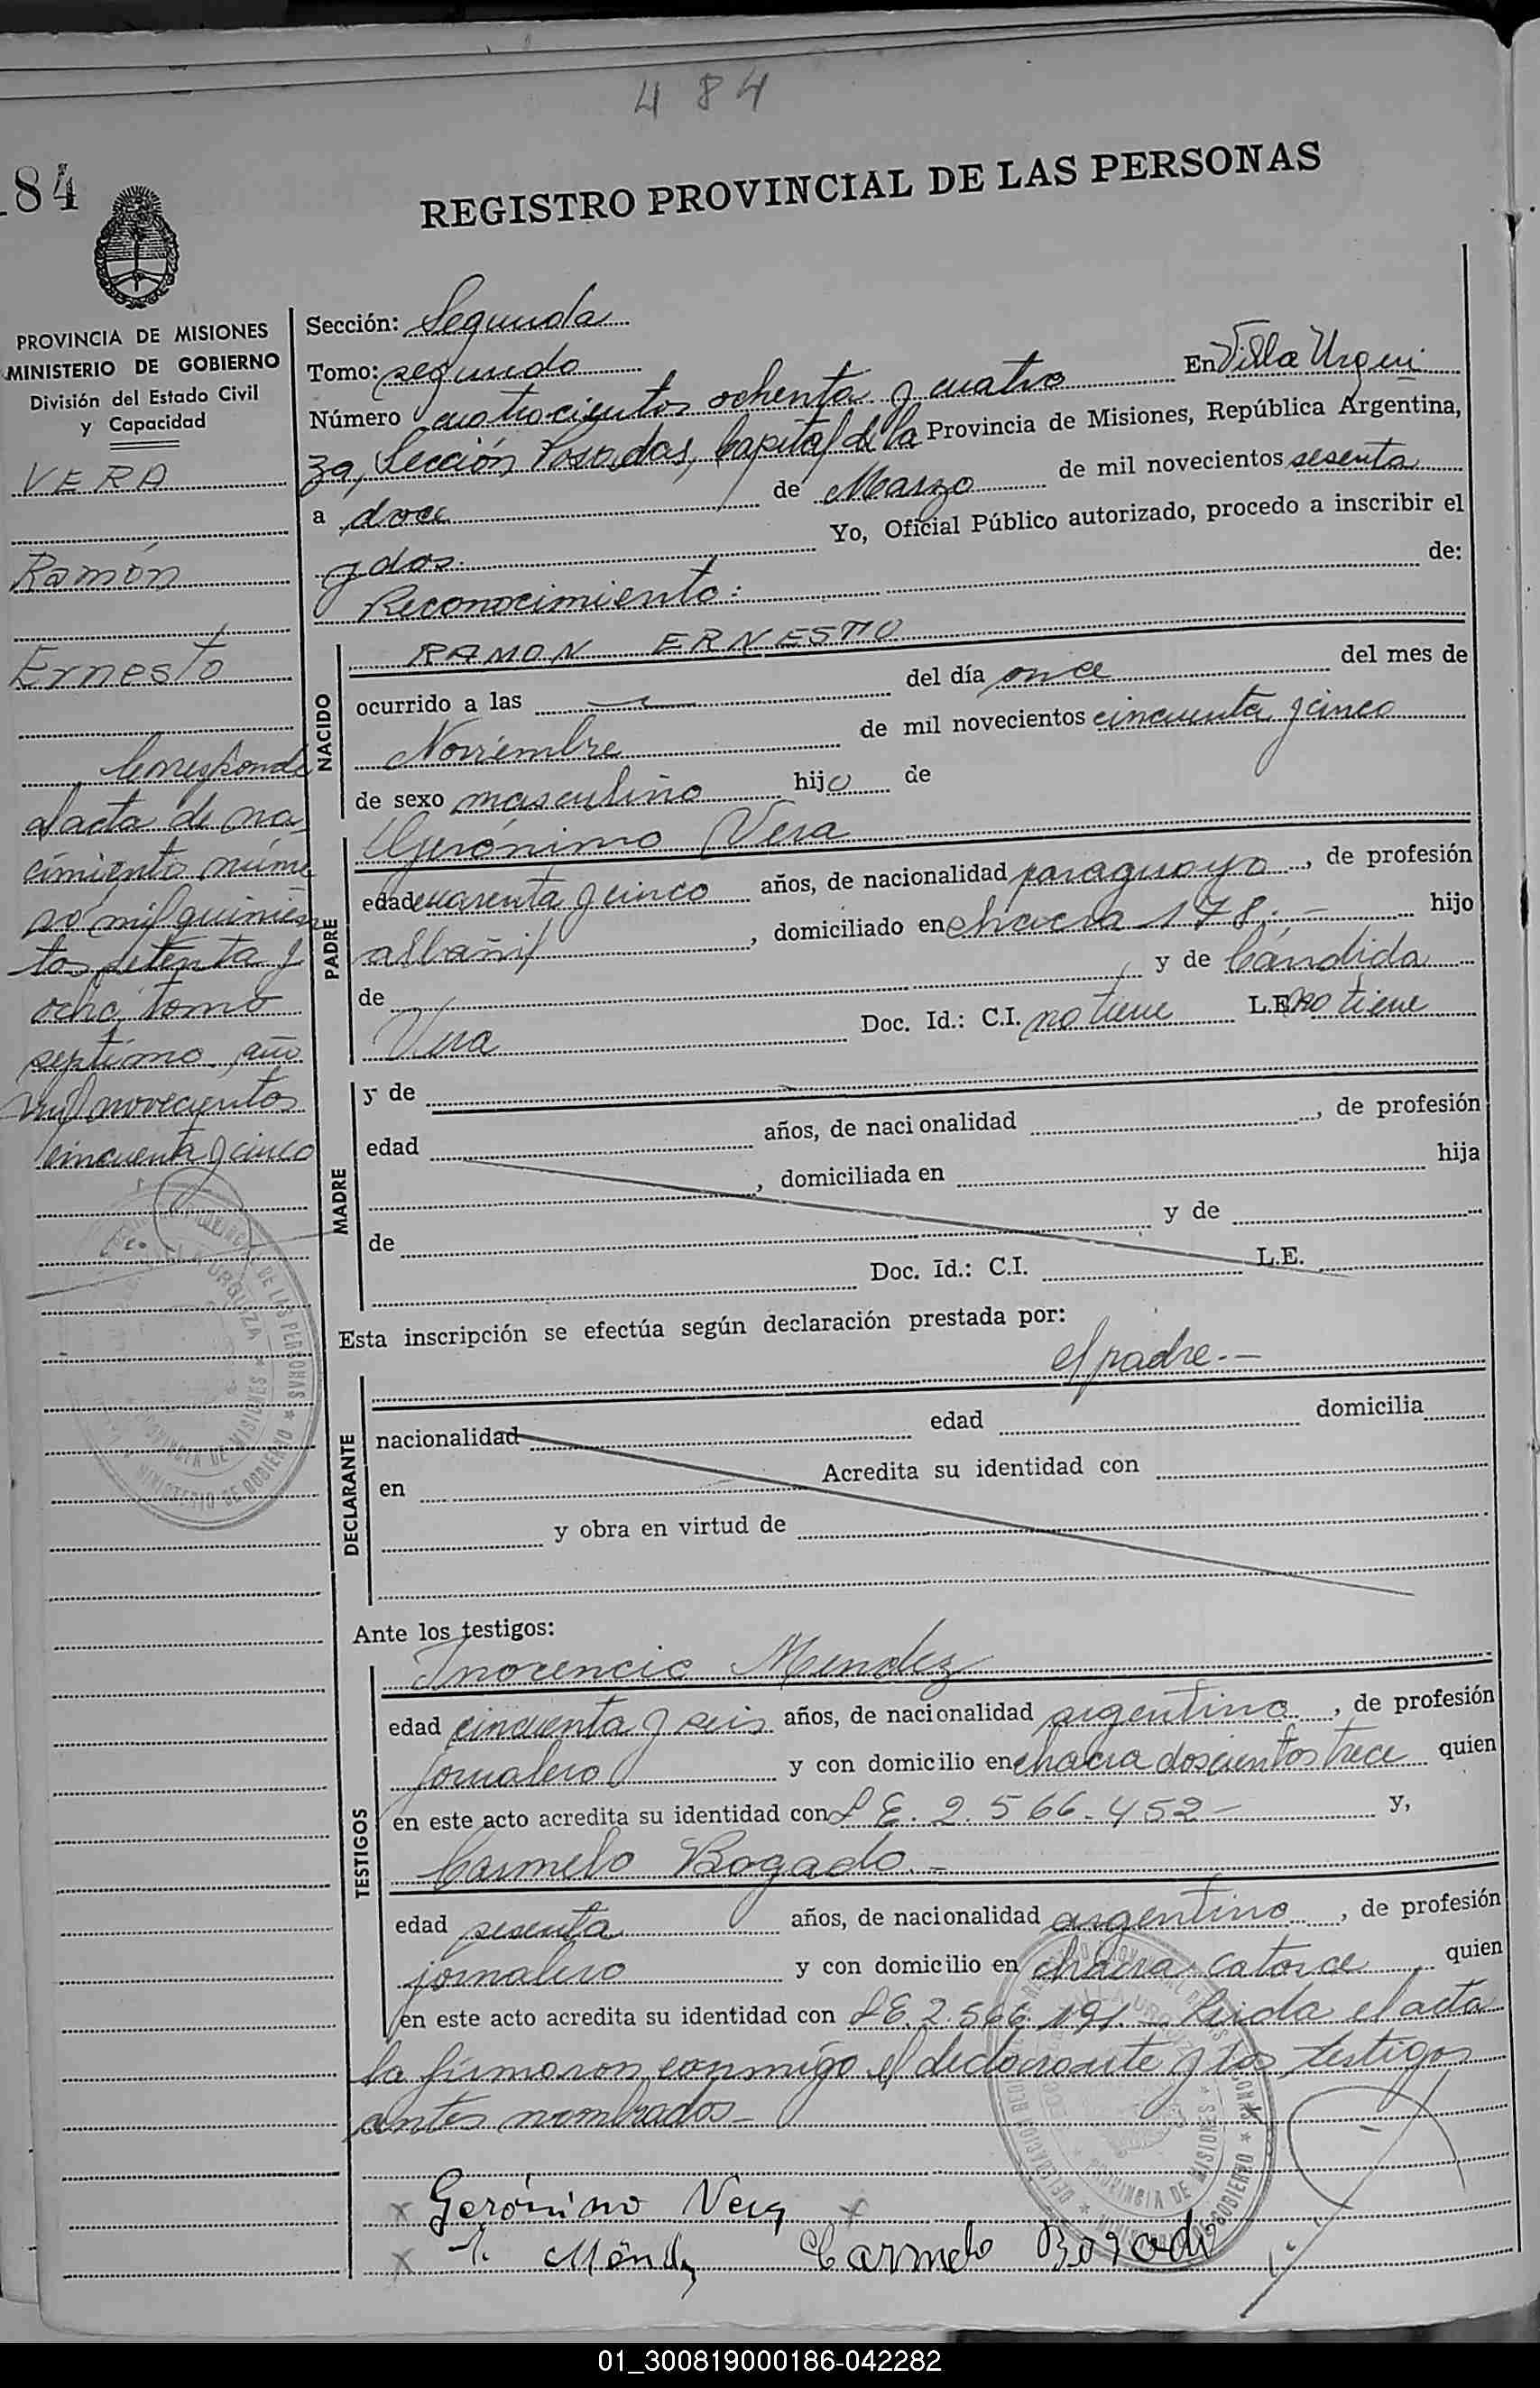 484
84
REGISTRO PROVINCIAL DE LAS PERSONAS
PROVINCIA DE MISIONES
MINISTERIO DE GOBIERNO
División del Estado Civil
y Capacidad
VERA
Ramón
Ernesto
Corresponde
al acta de na
cimiento núme
ro mil quinien
tos setenta y
ocho, tomo
septimo, año
mil novecientos
cincuenta y cinco
Sección: Segunda
Tomo: segundo
Número cuatrocientos ochenta y cuatro En Villa Urqui
za, Sección Posadas, Capital de la Provincia de Misiones, República Argentina,
a doce de Marzo de mil novecientos sesenta
y dos. Yo, Oficial Público autorizado, procedo a inscribir el
Reconocimiento: de:
NACIDO
RAMON ERNESTO
ocurrido a las del día once del mes de
Noviembre de mil novecientos cincuenta y cinco
de sexo masculino hijo de
PADRE
Gerónimo Vera
edad cuarenta y cinco años, de nacionalidad paraguayo, de profesión
albañil, domiciliado en chacra 178.- hijo
de y de Cándida
Vera Doc. Id.: C.I. no tiene L.E. no tiene
MADRE
y de
edad años, de nacionalidad , de profesión
, domiciliada en hija
de y de
Doc. Id.: C.I. L.E.
Esta inscripción se efectúa según declaración prestada por:
el padre.-
DECLARANTE
nacionalidad edad domicilia
en Acredita su identidad con
y obra en virtud de
Ante los testigos:
TESTIGOS
Inocencio Mendez
edad cincuenta y seis años, de nacionalidad argentino, de profesión
jornalero y con domicilio en chacra doscientos trece quien
en este acto acredita su identidad con L E. 2.566.452- y,
Carmelo Bogado.-
edad sesenta años, de nacionalidad argentino, de profesión
jornalero y con domicilio en chacra catorce quien
en este acto acredita su identidad con L E. 2.566.191.- Leida el acta
la firmaron conmigo el declarante y los testigos
antes nombrados-
Gerónimo Vera
Carmelo
VILLA URQUIZA
PROVINCIA DE MISIONES
MINISTERIO DE GOBIERNO
01_300819000186-042282